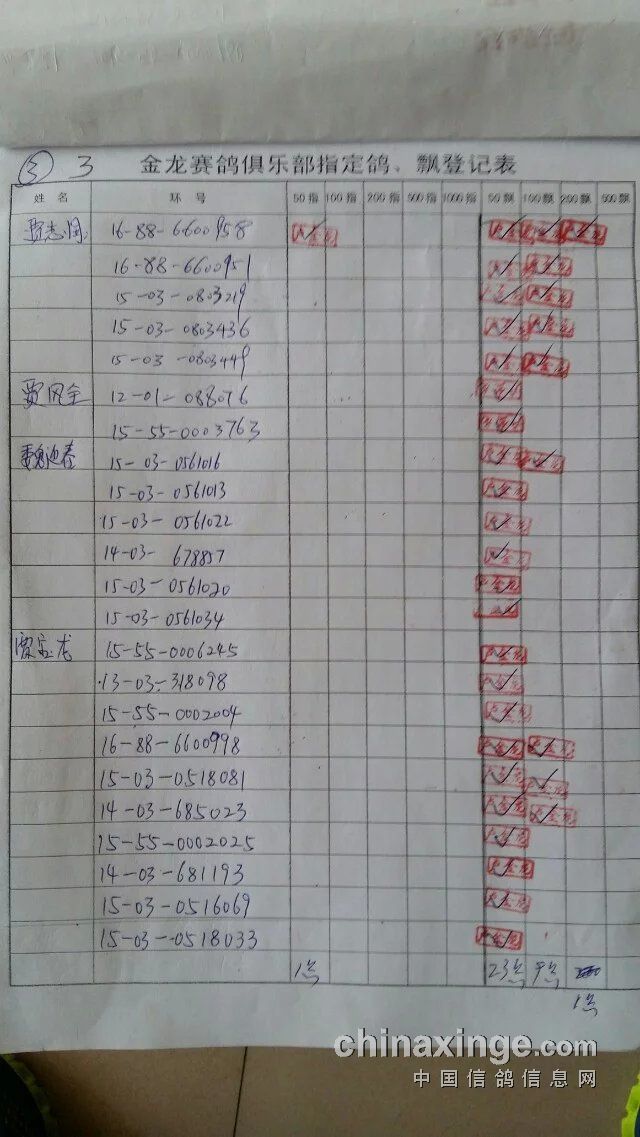 ③ 3 金龙赛鸽俱乐部指定鸽、飘登记表
姓名 环号 50指 100指 200指 500指 1000指 50飘 100飘 200飘 500飘
贾志国 16-88-6600958
16-88-6600951
15-03-0803219
15-03-0803436
15-03-0803449
贾风全 12-01-088076
15-55-0003763
魏迎春 15-03-0561016
15-03-0561013
15-03-0561022
14-03-678857
15-03-0561020
15-03-0561034
贾玉龙 15-55-0006245
13-03-318098
15-55-0002004
16-88-6600998
15-03-0518081
14-03-685023
15-55-0002025
14-03-681193
15-03-0516069
15-03-0518033
1 23 9
1
chinaxinge.com
中国信鸽信息网